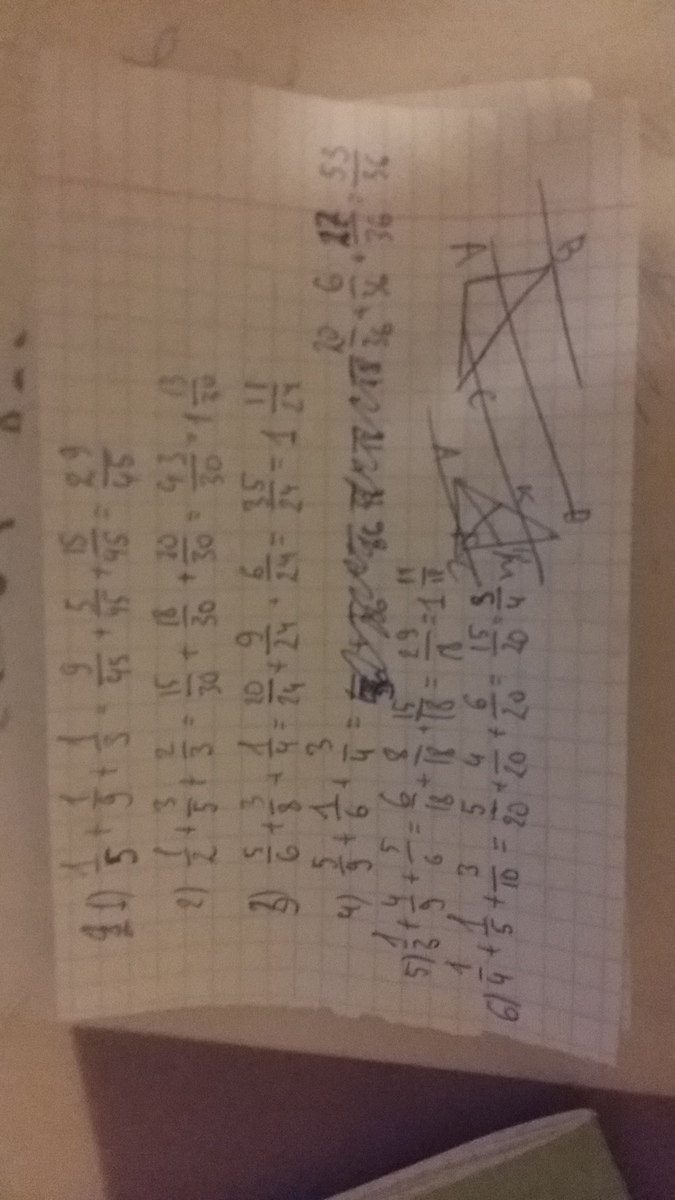 1) 1/5 + 1/9 + 1/3 = 9/45 + 5/45 + 15/45 = 29/45
2) 1/2 + 3/5 + 2/3 = 15/30 + 18/30 + 20/30 = 43/30 = 1 13/30
3) 5/6 + 3/8 + 1/4 = 20/24 + 9/24 + 6/24 = 35/24 = 1 11/24
4) 5/9 + 1/6 + 3/4 = 20/36 + 6/36 + 27/36 = 53/36
5) 1/3 + 4/9 + 5/6 = 6/18 + 8/18 + 15/18 = 29/18 = 1 11/18
6) 1/4 + 1/5 + 3/10 = 5/20 + 4/20 + 6/20 = 15/20 = 3/4
A
B
C
A
K